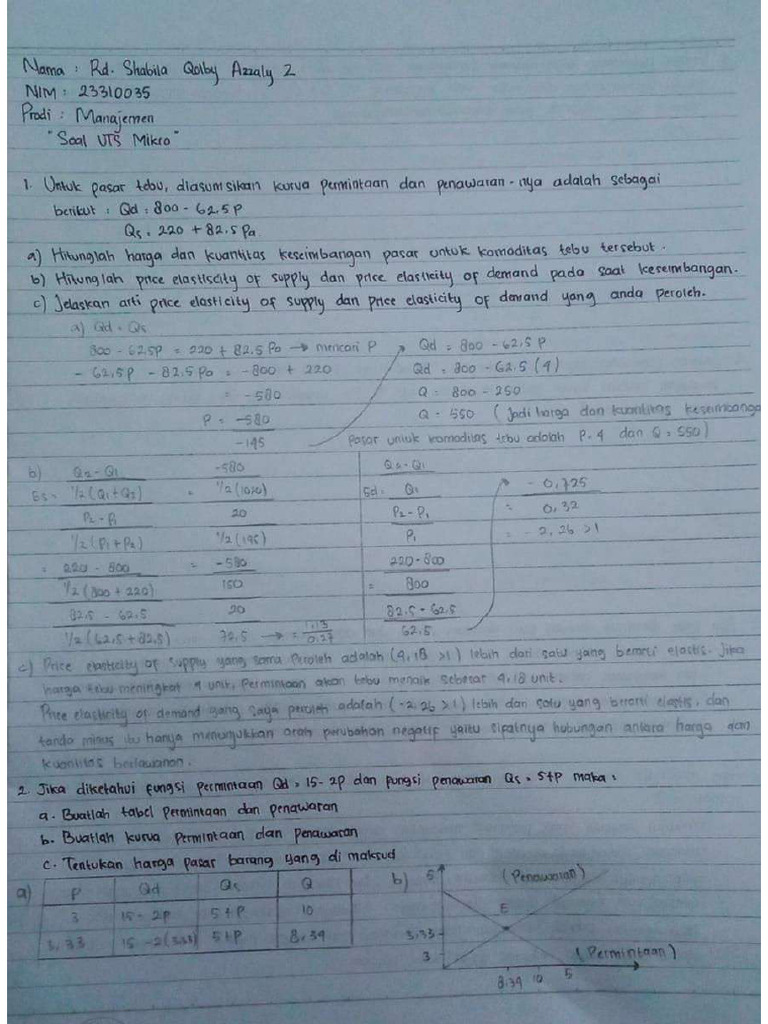 Nama : Rd. Shabila Qolby Azzaly Z
NIM : 23310035
Prodi : Manajemen
"Soal UTS Mikro"
1. Untuk pasar tebu, diasumsikan kurva permintaan dan penawaran-nya adalah sebagai
berikut : Qd = 800 - 62,5P
Qs = 220 + 82,5 Pa
a) Hitunglah harga dan kuantitas keseimbangan pasar untuk komoditas tebu tersebut.
b) Hitunglah price elastiscity of supply dan price elasticity of demand pada saat keseimbangan.
c) Jelaskan arti price elasticity of supply dan price elasticity of demand yang anda peroleh.
a) Qd = Qs
800 - 62,5P = 220 + 82,5 Pa → mencari P
- 62,5P - 82,5 Pa = -800 + 220
= - 580
P = -580
-145
Qd = 800 - 62,5 P
Qd = 800 - 62,5 (4)
Q = 800 - 250
Q = 550 ( Jadi harga dan kuantitas keseimbanga
pasar untuk komoditas tebu adalah P = 4 dan Q = 550)
b) Q2 - Q1
Es = 1/2 (Q1 + Q2)
P2 - P1
1/2 (P1 + P2)
= 220 - 800
1/2 (800 + 220)
82,5 - 62,5
1/2 (62,5 + 82,5)
-580
= 1/2 (1020)
20
1/2 (145)
= -580
150
20
72,5 → = 1,13
0,27
Q2 - Q1
Ed = Q1
P2 - P1
P1
220 - 800
= 800
82,5 - 62,5
62,5
- 0,725
= 0,32
= - 2,26 > 1
c) Price elasticity of supply yang sama Peroleh adalah (4,18 > 1) lebih dari satu yang berarti elastis. Jika
harga tebu meningkat 4 unit, Permintaan akan tebu menaik sebesar 4,18 unit.
Price elasticity of demand yang saya peroleh adalah (-2,26 > 1) lebih dari satu yang berarti elastis, dan
tanda minus itu hanya menunjukkan arah perubahan negatif yaitu sifatnya hubungan antara harga dan
kuantitas berlawanan.
2. Jika diketahui fungsi permintaan Qd = 15 - 2P dan fungsi penawaran Qs = 5+P maka :
a. Buatlah tabel Permintaan dan penawaran
b. Buatlah kurva Permintaan dan penawaran
c. Tentukan harga pasar barang yang di maksud
a) P Qd Qs Q
3 15 - 2P 5 + P 10
3,33 15 - 2(3,33) 5+P 8,34
b) 5 (Penawaran)
E
3,33
3 (Permintaan)
8,34 10 5